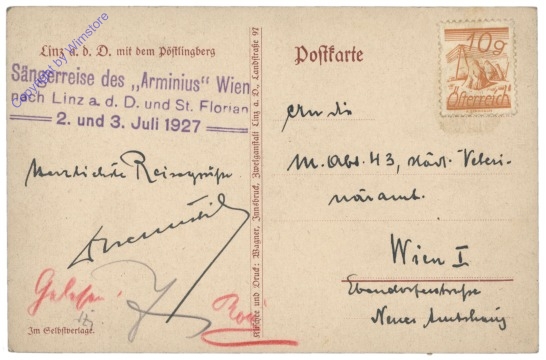 Linz a. d. D. mit dem Pöstlingberg
Copyright by Wimstore
Sängerreise des „Arminius" Wien
nach Linz a. d. D. und St. Florian
2. und 3. Juli 1927
Herzlichste Reisegrüße
Gelesen!
Im Selbstverlage.
Klischee und Druck: Wagner, Innsbruck, Zweiganstalt Linz a. D., Landstraße 97
Postkarte
10g
Österreich
An die
M. Abt. 43, städt. Veteri-
näramt.
Wien I
Ebendorferstraße
Neues Amtshaus